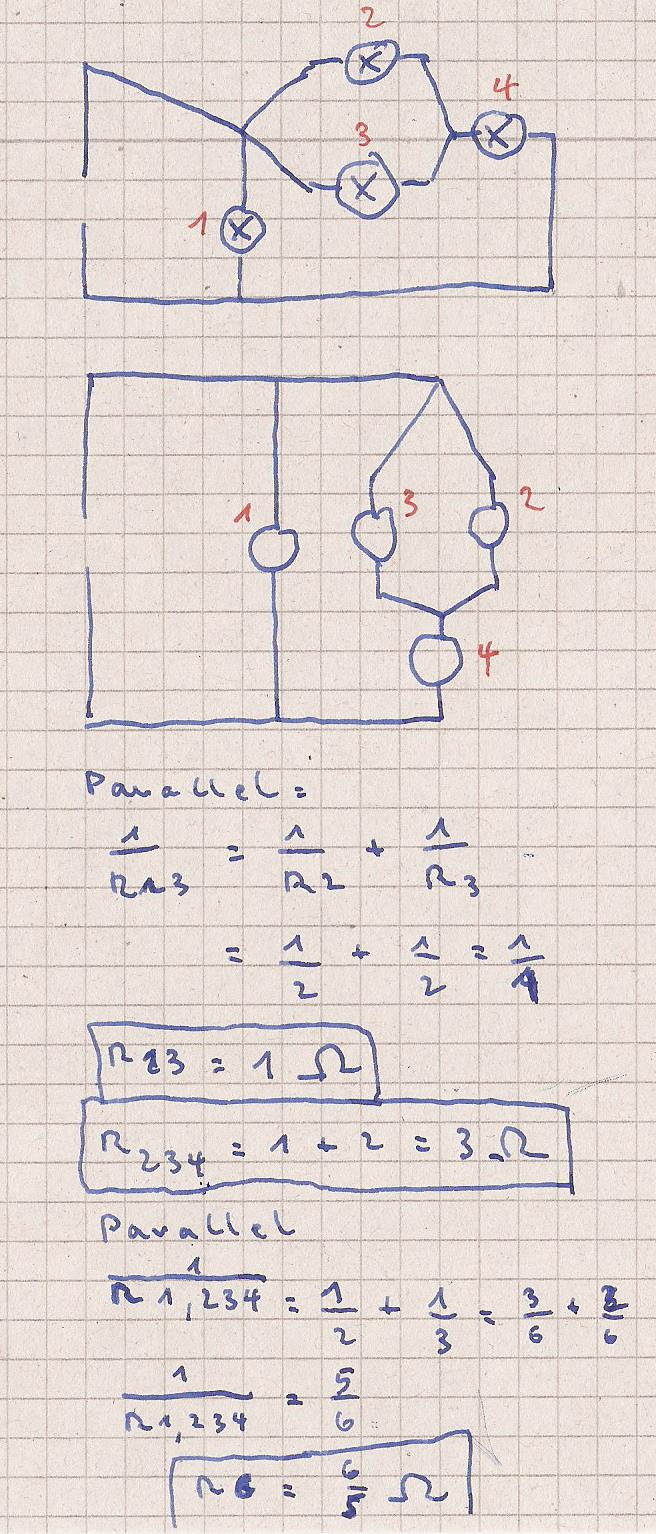 2
4
3
1
1
3
2
4
Parallel =
1/R23 = 1/R2 + 1/R3
= 1/2 + 1/2 = 1/1
R23 = 1 Ω
R234 = 1 + 2 = 3 Ω
Parallel
1/R1,234 = 1/2 + 1/3 = 3/6 + 2/6
1/R1,234 = 5/6
RG = 6/5 Ω